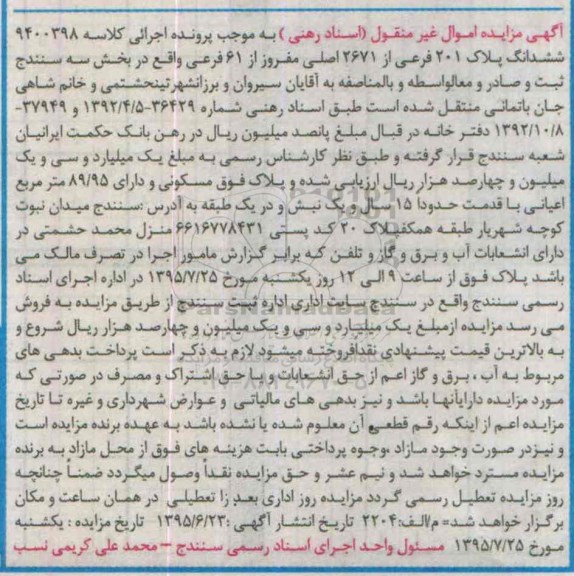 آگهی مزایده اموال غیر منقول (اسناد رهنی ) به موجب پرونده اجرائی کلاسه ۹۴۰۰۳۹۸
ششدانگ پلاک ۲۰۱ فرعی از ۲۶۷۱ اصلی مفروز از ۶۱ فرعی واقع در بخش سه سنندج
ثبت و صادر و معالواسطه و بالمناصفه به آقایان سیروان و برزانشهرتینحشتمی و خانم شاهی
جان باتمانی منتقل شده است طبق اسناد رهنی شماره ۳۶۴۲۹-۱۳۹۲/۴/۵ و ۳۷۹۴۹-
۱۳۹۲/۱۰/۸ دفتر خانه در قبال مبلغ پانصد میلیون ریال در رهن بانک حکمت ایرانیان
شعبه سنندج قرار گرفته و طبق نظر کارشناس رسمی به مبلغ یک میلیارد و سی و یک
میلیون و چهارصد هزار ریال ارزیابی شده و پلاک فوق مسکونی و دارای ۸۹/۹۵ متر مربع
اعیانی با قدمت حدودا ۱۵ سال و یک نبش و در یک طبقه به آدرس :سنندج میدان نبوت
کوچه شهریار طبقه همکفپلاک ۲۰ کد پستی ۶۶۱۶۷۷۸۴۳۱ منزل محمد حشمتی در
دارای انشعابات آب و برق و گاز و تلفن که برابر گزارش مامور اجرا در تصرف مالک می
باشد پلاک فوق از ساعت ۹ الی ۱۲ روز یکشنبه مورخ ۱۳۹۵/۷/۲۵ در اداره اجرای اسناد
رسمی سنندج واقع در سنندج سایت اداری اداره ثبت سنندج از طریق مزایده به فروش
می رسد مزایده ازمبلغ یک میلیارد و سی و یک میلیون و چهارصد هزار ریال شروع و
به بالاترین قیمت پیشنهادی نقدافروخته میشود لازم به ذکر است پرداخت بدهی های
مربوط به آب ، برق و گاز اعم از حق انشعابات و یا حق اشتراک و مصرف در صورتی که
مورد مزایده دارایآنها باشد و نیز بدهی های مالیاتی و عوارض شهرداری و غیره تا تاریخ
مزایده اعم از اینکه رقم قطعی آن معلوم شده یا نشده باشد به عهده برنده مزایده است
و نیزدر صورت وجود مازاد ،وجوه پرداختی بابت هزینه های فوق از محل مازاد به برنده
مزایده مسترد خواهد شد و نیم عشر و حق مزایده نقداً وصول میگردد ضمناً چنانچه
روز مزایده تعطیل رسمی گردد مزایده روز اداری بعد از تعطیلی در همان ساعت و مکان
برگزار خواهد شد= م/الف:۲۲۰۴ تاریخ انتشار آگهی :۱۳۹۵/۶/۲۳ تاریخ مزایده : یکشنبه
مورخ ۱۳۹۵/۷/۲۵ مسئول واحد اجرای اسناد رسمی سنندج – محمد علی کریمی نسب